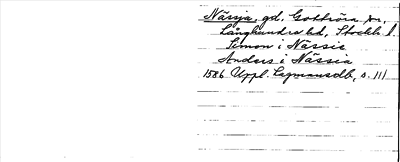 Nässja, gd, Gottröra sn,
Långhundra hd, Stockh. l.
Simon i Nässie
Anders i Nässia
1586 Uppl. Lagmansdb, s. 111